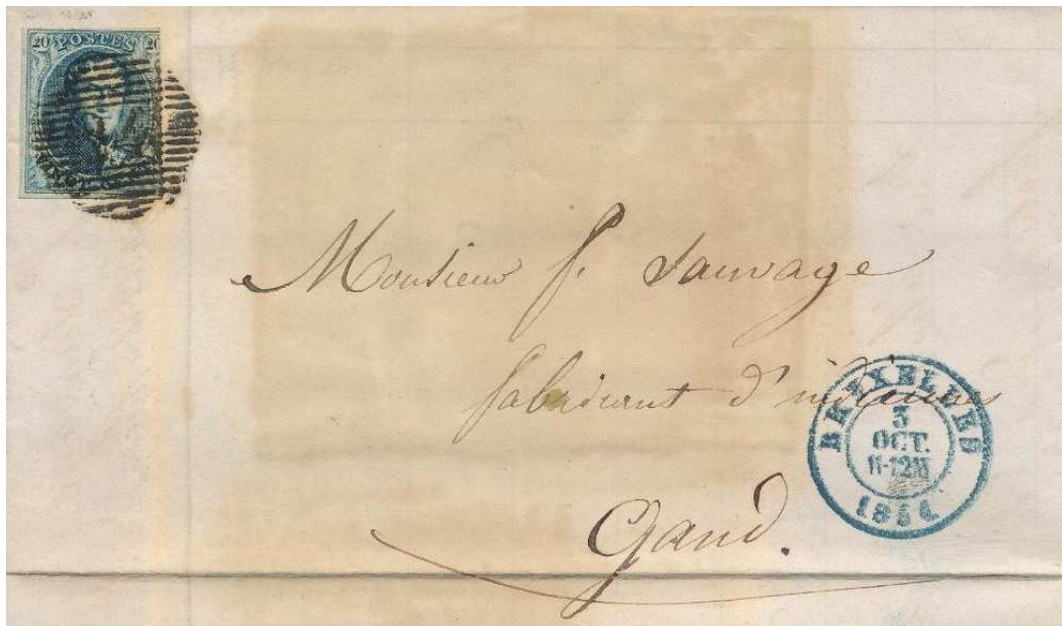 20 POSTES 20
24
Monsieur f. Sauvage
fabricant d'indiennes
Gand.
BRUXELLES
3
OCT.
11-12M
1854